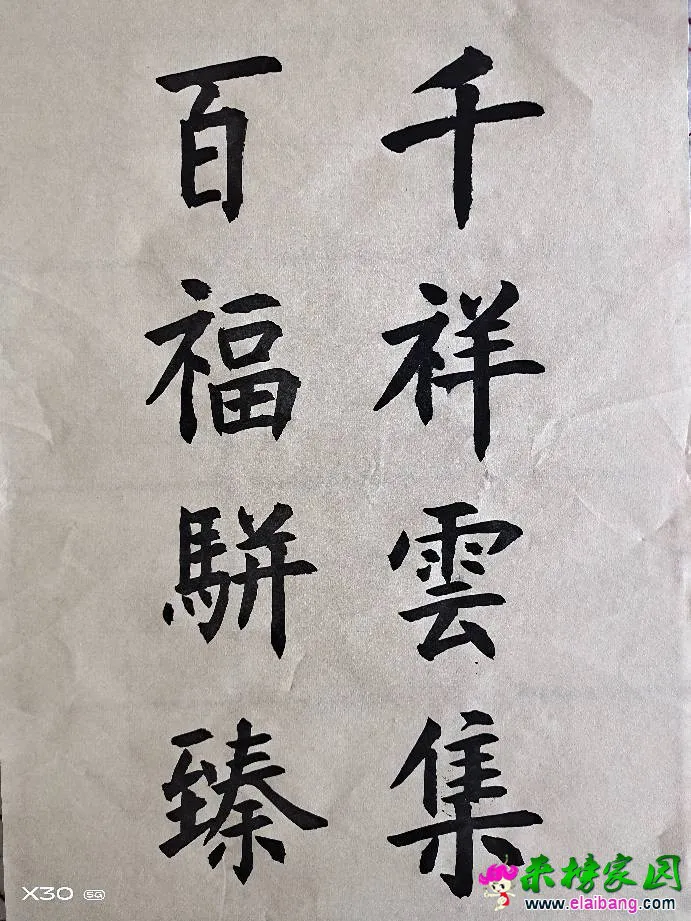 千祥雲集
百福駢臻
X30 5G
来榜家园
www.elaibang.com